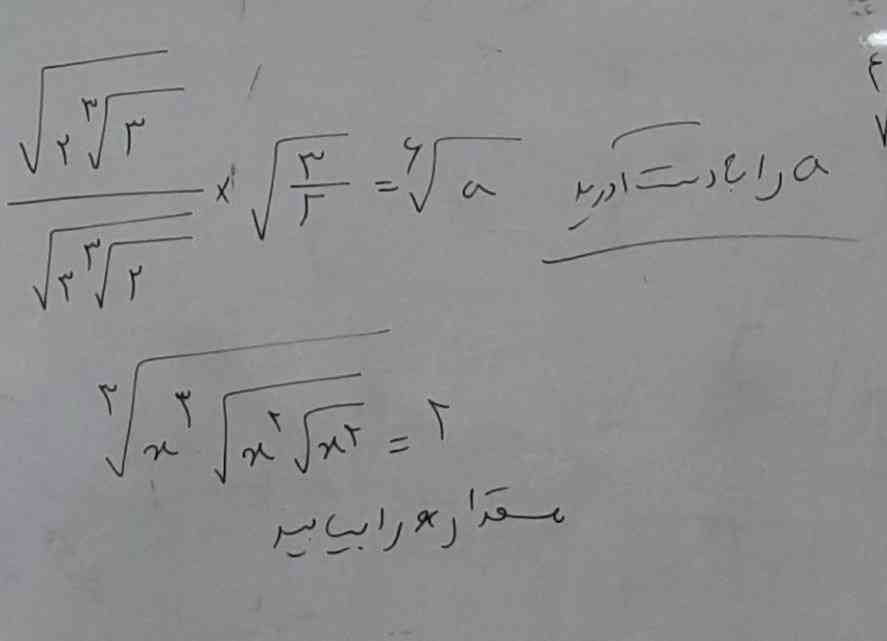 √(۲ ∛۳) / √(۳ ∛۲) × √(۳/۲) = ⁶√a a را بدست آورید
∛(x ∛(x² √x²)) = ۲
مقدار x را بیابید